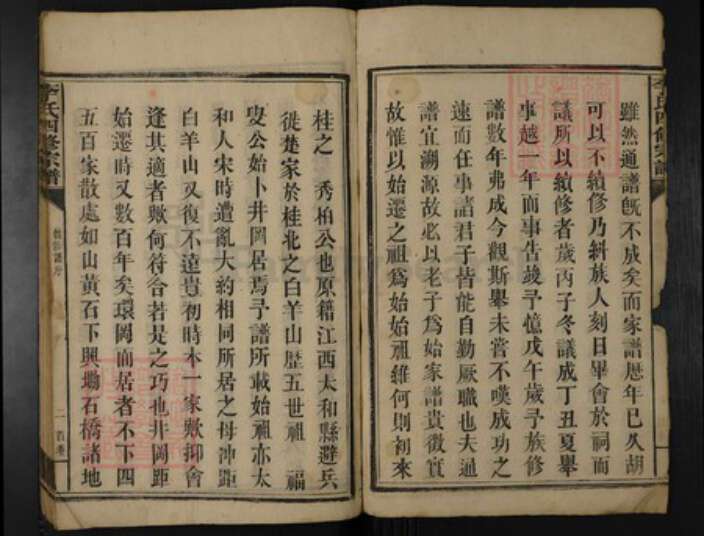 雖然通譜旣不成矣而家譜歴年已久胡
可以不續修乃糾族人刻日畢會於祠而
議所以續修者歲丙子冬議成丁丑夏舉
事越一年而事告竣予憶戊午歲予族修
譜數年弗成今觀斯舉未嘗不嘆成功之
速而任事諸君子皆能自勤厥職也夫通
譜宜溯源故必以老子爲始家譜貴徵實
故惟以始遷之祖爲始始祖維何則初來
桂之 秀柏公也原籍江西太和縣避兵
徙楚家於桂北之白羊山歴五世祖 福
叟公始卜井岡居焉予譜所載始祖亦太
和人宋時遭亂大約相同所居之毋沖距
白羊山又復不遠豈初時本一家歟抑會
逢其適者歟何符合若是之巧也井岡距
始遷時又數百年矣環岡而居者不下四
五百家散處如山黃石下興塘石橋諸地
李氏四修宗譜
李氏四修宗譜